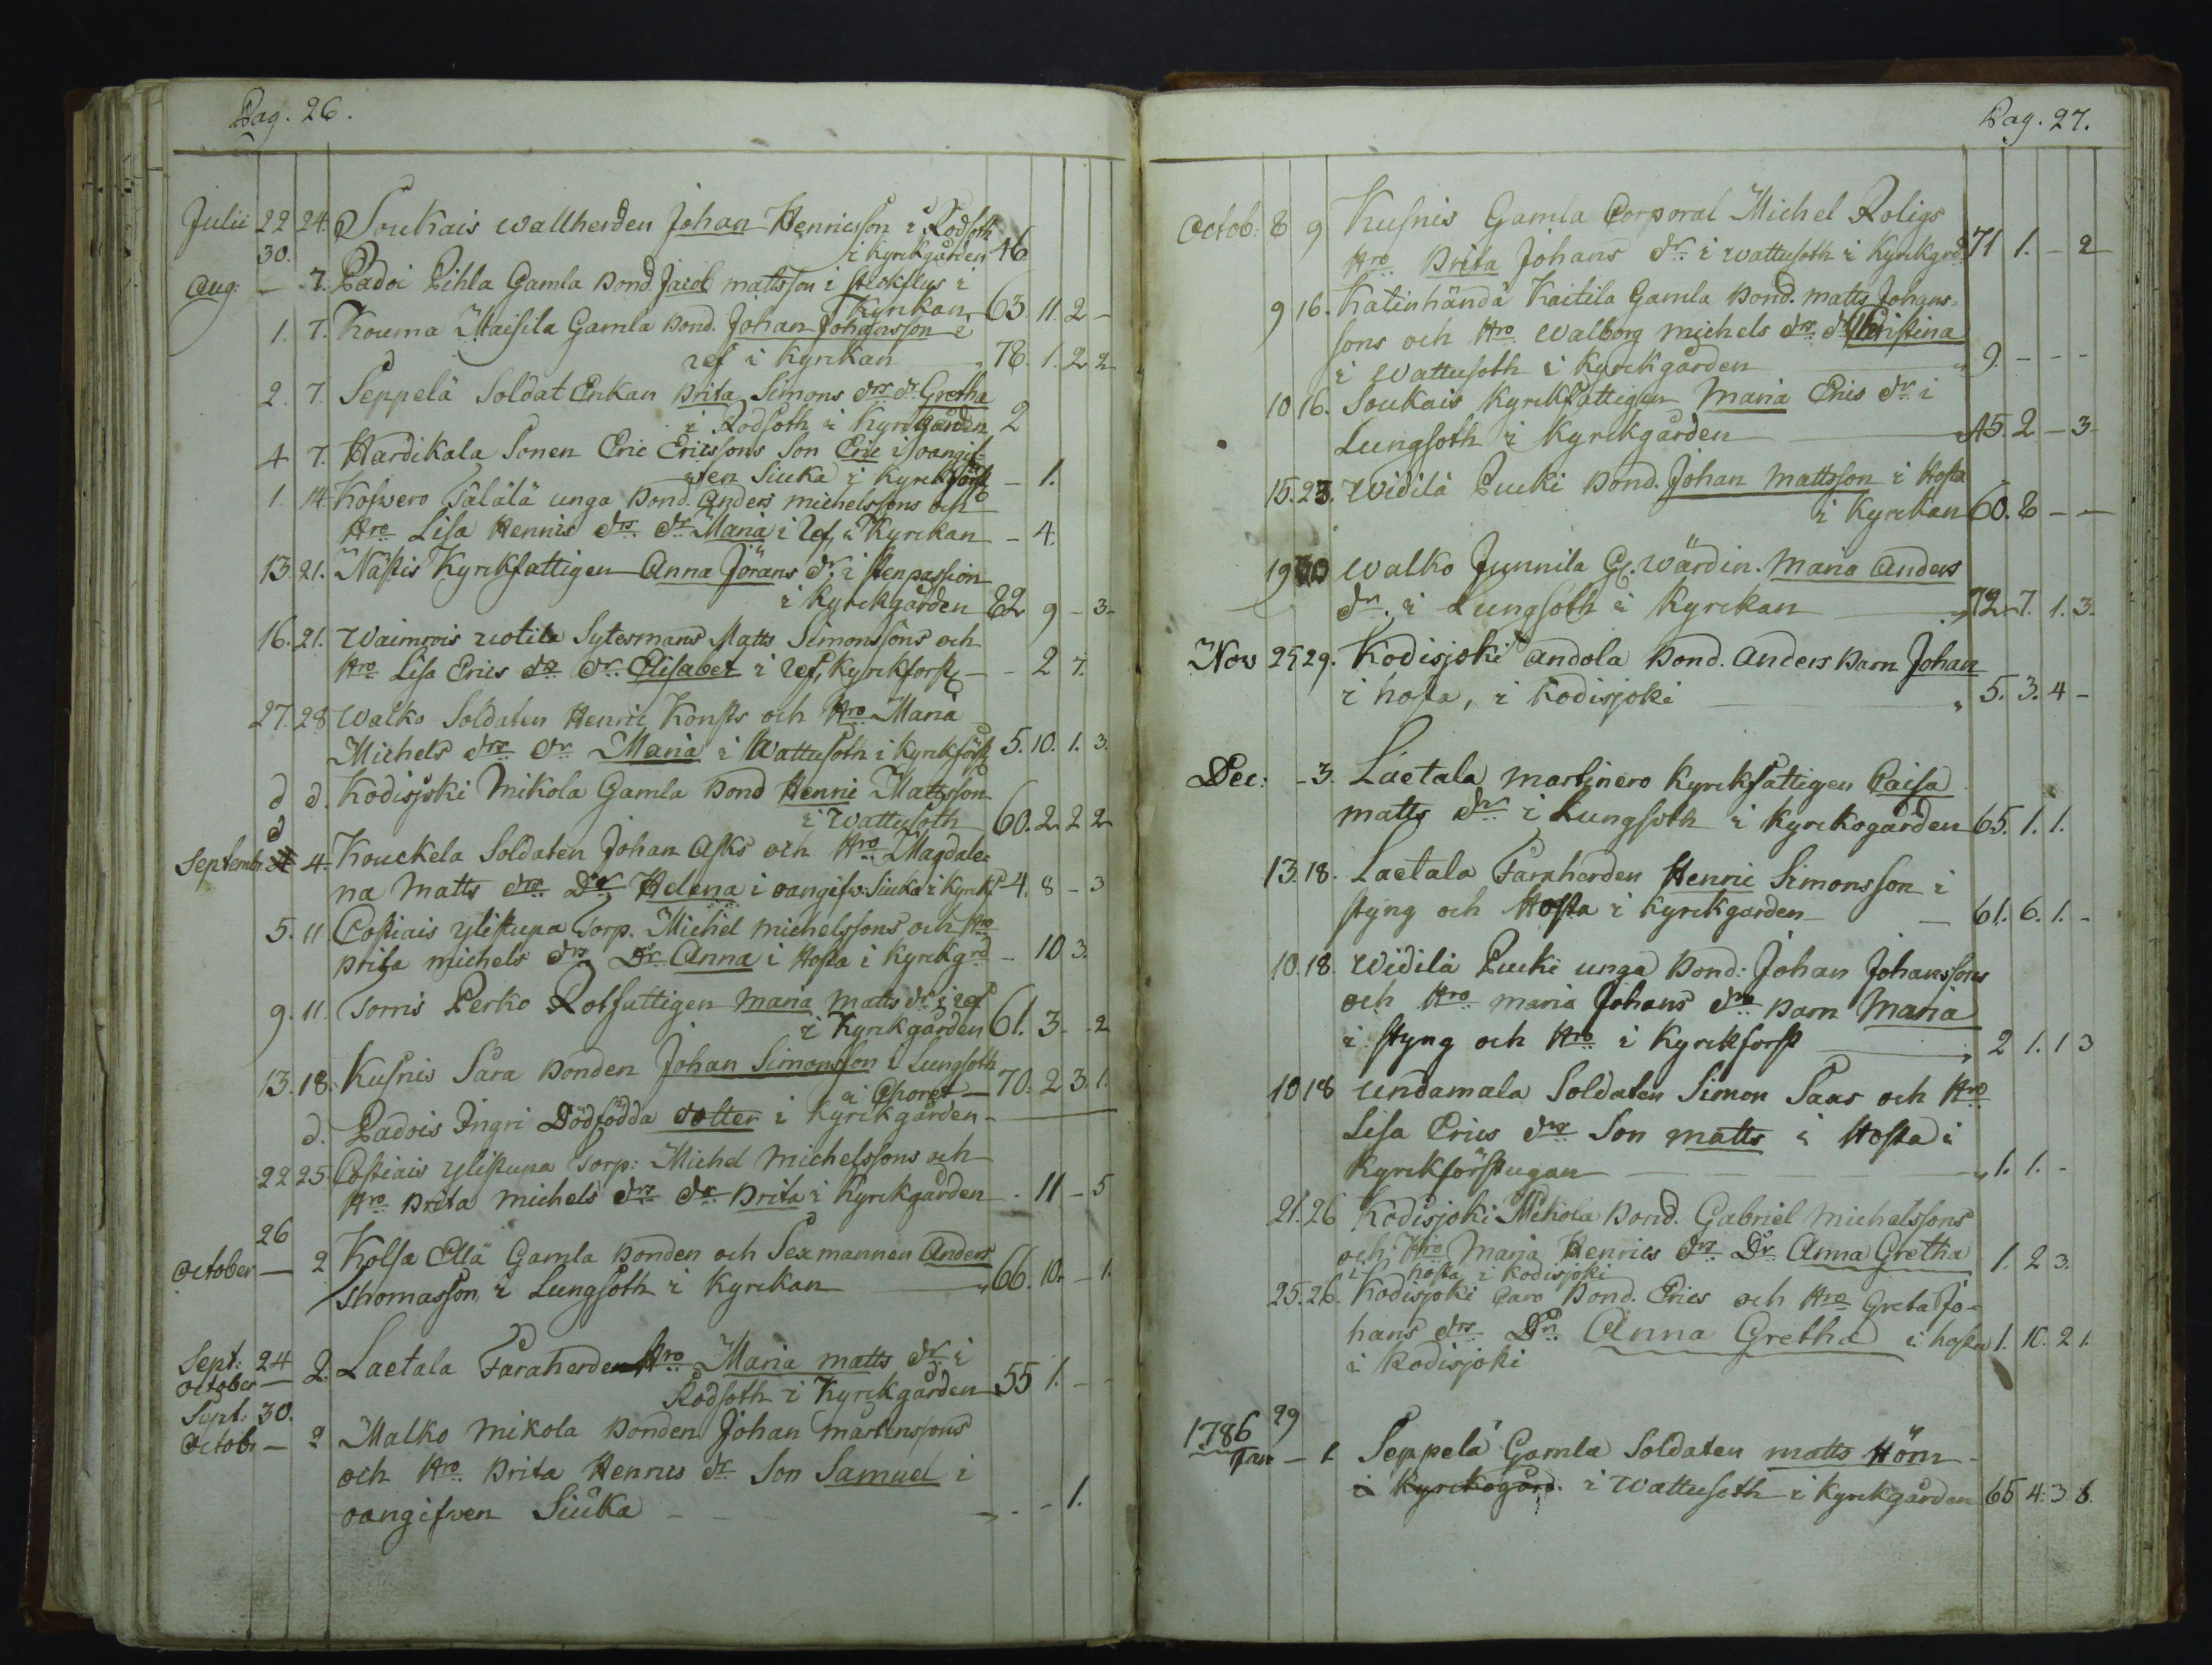 Pag. 26.
Julii 22 24. Soukais wallherden Johan Henricsson i Rodsoth
i kyrckgården 46
30.
Aug: — 7. Padoi Pihla Gamla Bond. Jacob mattsson i stickflus i
Kyrckan 63 11 2 -
1. 7. Kouma Maisila Gamla Bond. Johan Johansson i
ref i Kyrckan 78. 1. 2 2
2. 7. Seppelä Soldat Enkan Brita Simons drs dr. Gretha
i Rodsoth i Kyrckgården 2
4 7. Hardikala Sonen Eric Ericssons Son Eric i oangif-
wen Siuka i Kyrckförst - 1.
1. 14. Kofwero Tälälä unga Bond. Anders michelssons och
Hro Lisa Henrics drs dr Maria i ref, i Kyrckan - 4.
13. 21. Nästis Kyrckfattigen Anna Jörans dr, i stenpassion
i Kyrckgården 82 9 - 3-
16. 21. Waimrois uotila Sytesmans Matts Simonssons och
Hro Lisa Erics drs dr Elisabet i ref, Kyrckforst - - 2 7.
27. 28 Walko Soldaten Henric Konsts och Hro Maria
Michels drs dr Maria i Wattusoth i Kyrckförst 5. 10. 1. 3.
d d. Kodisjoki Mikola Gamla Bond Henric Mattsson
i Wattusoth 60. 2. 2 2
d
Septembr 4. Kouckela Soldaten Johan Asks och Hro Magdale-
na Matts drs Dr Helena i oangifw: Siuka i Kyrckf 4. 8 - 3
5. 11 Costiais ylistupa Torp. Michel michelssons och Hro
Brita michels drs Dr Anna i Hosta i Kyrckgrd - 10 3.
9. 11. Torris Perko Rotfattigen Maria Matts dr i ref
i Kyrckgården 61. 3 - 2
13. 18. Kusnis Sara Bonden Johan Simonsson i Lungsoth
i Choret - 70: 2 3 1.
d. Padois Ingri Dödfödda dotter i Kyrckgården -
22 25. Costiais ylistupa Torp: Michel Michelssons och
Hro Brita Michels drs dr Brita i Kyrckgården - 11 - 5
26
October — 2 Kolsa Ellä Gamla Bonden och Sexmannen Anders
Thomasson, i Lungsoth i Kyrckan 66. 10. - 1.
Sept: 24
October — 2. Laetala Faraherden Hro Maria matts dr i
Rodsoth i Kyrckgården 55 1. - -
Sept: 30.
Octobr — 2 Malko Mikola Bonden Johan Martenssons
och Hro Brita Henrics dr Son Samuel i
oangifven Siuka - - - 1.
Pag. 27.
Octob: 8 9 Kusnis Gamla Corporal Michel Roligs
Hro Brita Johans dr i wattusoth i Kyrckgrd: 71 1. - 2
9 16. Katinhändä Kaitila Gamla Bond. matts Johans-
sons och Hro Walborg michels drs dr Christina
i Wattusoth i Kyrckgården 9. - - -
10 16. Soukais Kyrckfattigen Maria Erics dr i
Lungsoth i Kyrckgården 45. 2 - 3-
15. 23. Widilä Pucki Bond. Johan Mattsson i Hosta
i Kyrckan 60. 8 - -
19 30 Walko Junnila G. Wärdin. Maria Anders
dr. i Lungsoth i Kyrckan 72. 7. 1. 3.
Nov 25 29. Kodisjoki Andola Bond. Anders Barn Johan
i hosta, i Kodisjoki 5. 3. 4 -
Dec: - 3. Laetala Martinero Kyrckfattigen Caisa
matts dr i Lungsoth i Kyrckogården 65. 1. 1.
13. 18. Laetala Faraherden Henric Simonsson i
styng och Hosta i Kyrckgården 61. 6. 1. -
10. 18. Widilä Pucki unga Bond: Johan Johanssons
och Hro maria Johans drs Barn Maria
i styng och Hro i Kyrckforst 2 1. 1 3
10 18 Undamala Soldaten Simon Saas och Hro
Lisa Erics drs Son matts i Hosta i
Kyrckförstugan 1. 1. -
21. 26 Kodisjoki Mikola Bond. Gabriel Michelssons
och Hro Maria Henrics drs Dr. Anna Gretha 1. 2 3.
i hosta i Kodisjoki
25. 26. Kodisjoki Caro Bond. Erics och Hro Greta Jo-
hans drs Dr. Anna Gretha i hosta 1. 10. 2 1.
i Kodisjoki
1786 29
Jan — 1. Seppelä Gamla Soldaten matts Hörn
i Kyrckogård. i Wattusoth i Kyrckgården 65 4. 3 6.